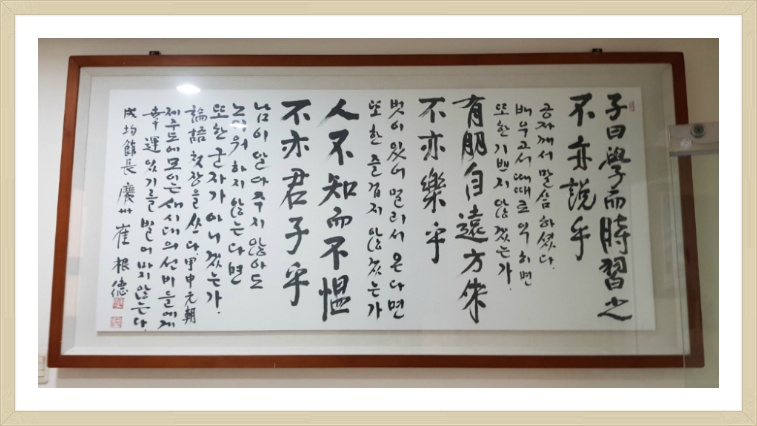 子曰學而時習之
不亦說乎
공자께서 말씀하셨다.
배우고서 때때로 익히면
또한 기쁘지 않겠는가.
有朋自遠方來
不亦樂乎
벗이 있어 멀리서 온다면
또한 즐겁지 않겠는가
人不知而不慍
不亦君子乎
남이 알아주지 않아도
노여워하지 않는다면
또한 군자가 아니겠는가.
論語 첫장을 쓰다 甲申元朝
제주도에 모이는 새시대의 선비들에게
幸運 있기를 빌어 마지않는다.
成均館長 慶州 崔根德